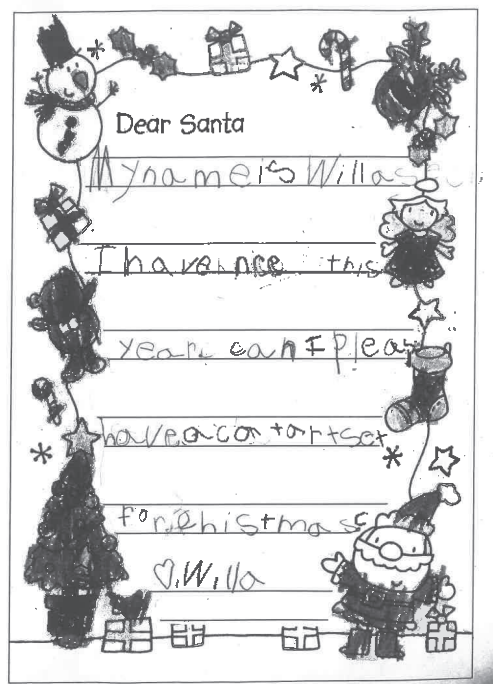 Dear Santa
My name is Willa
I have nice this
year. can I pleas
have a cat art set
for Chistmas
♡. Willa